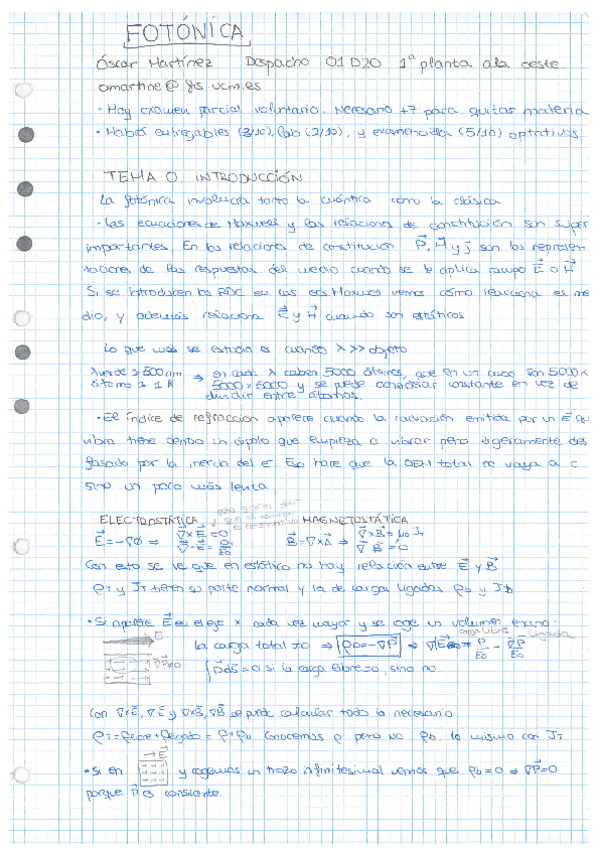 FOTÓNICA
Óscar Martínez Despacho 01D20 1ª planta ala oeste
omartine@fis.ucm.es
· Hay examen parcial voluntario. Necesario +7 para quitar materia
· Habrá entregables (3/10), lab (2/10), y examencillo (5/10) optativos
TEMA 0. INTRODUCCIÓN
La fotónica involucra tanto la cuántica como la clásica
· Las ecuaciones de Maxwell y las relaciones de constitución son super
importantes. En las relaciones de constitución P, M y J son las represen-
taciones de las respuestas del medio cuando se le aplica campo E o H
Si se introducen las RDC en las ecs Maxwell vemos cómo reacciona el me
dio, y además relaciona E y H cuando son estáticos
Lo que más se estudia es cuando λ >> objeto
λverde ≈ 500nm → en cada λ caben 5000 átomos, que en un cubo son 5000×
átomo ≈ 1 Å 5000×5000 y se puede considerar constante en vez de
dividir entre átomos.
· El índice de refracción aparece cuando la radiación emitida por un E que
vibra tiene dentro un dipolo que empieza a vibrar pero ligeramente des
fasado por la inercia del e⁻. Eso hace que la OEM total no vaya a c
sino un poco más lenta
ELECTROSTÁTICA MAGNETOSTÁTICA
E=-∇Φ ⇒ ∇×E=0 B=∇×A ⇒ ∇×B=μ₀J_T
∇·E=ρ/ε₀ ∇B=0
Con esto se ve que en estático no hay relación entre E y B
ρ_T y J_T tienen su parte normal y la de carga ligadas ρ_b y J_b
· Si aparece E en el eje x cada vez mayor y se coge un volumen enano:
E carga libre ligada
la carga total ≠0 ⇒ ρ_b=-∇P ⇒ ∇E = ρ/ε₀ - ∇P/ε₀
∇P≠0 ∫PdS=0 si la carga libre=0, sino no
Con ∇×E, ∇E y ∇×B, ∇B se puede calcular todo lo necesario
ρ_T=ρ_libre+ρ_ligado = ρ+ρ_b Conocemos ρ pero no ρ_b lo mismo con J_T
· Si en →E y cogemos un trozo infinitesimal vemos que ρ_b=0 ⇒ ∇P=0
porque es constante.